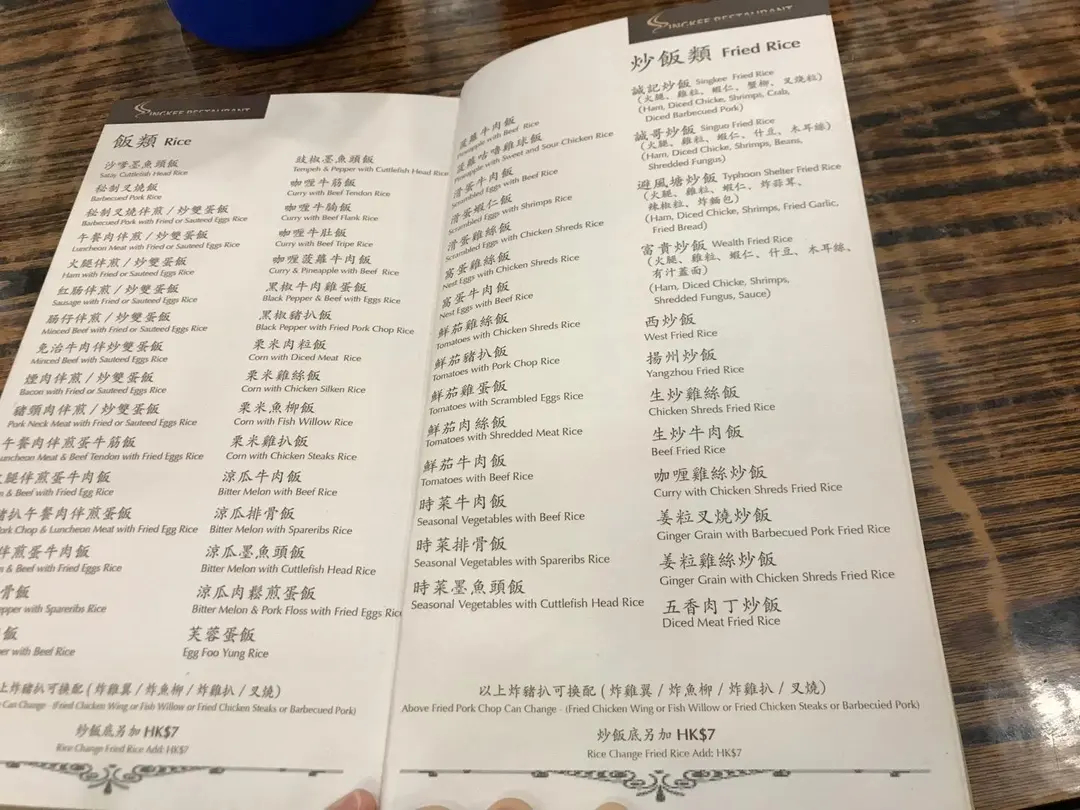 SINGKEE RESTAURANT
飯類 Rice
沙嗲墨魚頭飯
Satay Cuttlefish Head Rice
秘制叉燒飯
Barbecued Pork Rice
秘制叉燒伴煎/炒雙蛋飯
Barbecued Pork with Fried or Sauteed Eggs Rice
午餐肉伴煎/炒雙蛋飯
Luncheon Meat with Fried or Sauteed Eggs Rice
火腿伴煎/炒雙蛋飯
Ham with Fried or Sauteed Eggs Rice
紅腸伴煎/炒雙蛋飯
Sausage with Fried or Sauteed Eggs Rice
腸仔伴煎/炒雙蛋飯
Minced Beef with Fried or Sauteed Eggs Rice
免治牛肉伴炒雙蛋飯
Minced Beef with Sauteed Eggs Rice
煙肉伴煎/炒雙蛋飯
Bacon with Fried or Sauteed Eggs Rice
豬頸肉伴煎/炒雙蛋飯
Pork Neck Meat with Fried or Sauteed Eggs Rice
午餐肉伴煎蛋牛筋飯
Luncheon Meat & Beef Tendon with Fried Eggs Rice
腿伴煎蛋牛肉飯
& Beef with Fried Egg Rice
豬扒午餐肉伴煎蛋飯
Pork Chop & Luncheon Meat with Fried Egg Rice
伴煎蛋牛肉飯
& Beef with Fried Eggs Rice
骨飯
with Spareribs Rice
飯
with Beef Rice
豉椒墨魚頭飯
Tempeh & Pepper with Cuttlefish Head Rice
咖喱牛筋飯
Curry with Beef Tendon Rice
咖喱牛腩飯
Curry with Beef Flank Rice
咖喱牛肚飯
Curry with Beef Tripe Rice
咖喱菠蘿牛肉飯
Curry & Pineapple with Beef Rice
黑椒牛肉雞蛋飯
Black Pepper & Beef with Eggs Rice
黑椒豬扒飯
Black Pepper with Fried Pork Chop Rice
粟米肉粒飯
Corn with Diced Meat Rice
粟米雞絲飯
Corn with Chicken Silken Rice
粟米魚柳飯
Corn with Fish Willow Rice
粟米雞扒飯
Corn with Chicken Steaks Rice
涼瓜牛肉飯
Bitter Melon with Beef Rice
涼瓜排骨飯
Bitter Melon with Spareribs Rice
涼瓜墨魚頭飯
Bitter Melon with Cuttlefish Head Rice
涼瓜肉鬆煎蛋飯
Bitter Melon & Pork Floss with Fried Eggs Rice
芙蓉蛋飯
Egg Foo Yung Rice
上炸豬扒可換配(炸雞翼/炸魚柳/炸雞扒/叉燒)
Can Change - (Fried Chicken Wing or Fish Willow or Fried Chicken Steaks or Barbecued Pork)
炒飯底另加 HK$7
Rice Change Fried Rice Add: HK$7
菠蘿牛肉飯
Pineapple with Beef Rice
菠蘿咕嚕雞球飯
Pineapple with Sweet and Sour Chicken Rice
滑蛋牛肉飯
Scrambled Eggs with Beef Rice
滑蛋蝦仁飯
Scrambled Eggs with Shrimps Rice
滑蛋雞絲飯
Scrambled Eggs with Chicken Shreds Rice
窩蛋雞絲飯
Nest Eggs with Chicken Shreds Rice
窩蛋牛肉飯
Nest Eggs with Beef Rice
鮮茄雞絲飯
Tomatoes with Chicken Shreds Rice
鮮茄豬扒飯
Tomatoes with Pork Chop Rice
鮮茄雞蛋飯
Tomatoes with Scrambled Eggs Rice
鮮茄肉絲飯
Tomatoes with Shredded Meat Rice
鮮茄牛肉飯
Tomatoes with Beef Rice
時菜牛肉飯
Seasonal Vegetables with Beef Rice
時菜排骨飯
Seasonal Vegetables with Spareribs Rice
時菜墨魚頭飯
Seasonal Vegetables with Cuttlefish Head Rice
SINGKEE RESTAURANT
炒飯類 Fried Rice
誠記炒飯 Singkee Fried Rice
(火腿、雞粒、蝦仁、蟹柳、叉燒粒)
(Ham, Diced Chicke, Shrimps, Crab,
Diced Barbecued Pork)
誠哥炒飯 Singun Fried Rice
(火腿、雞粒、蝦仁、什豆、木耳絲)
(Ham, Diced Chicke, Shrimps, Beans,
Shredded Fungus)
避風塘炒飯 Typhoon Shelter Fried Rice
(火腿、雞粒、蝦仁、炸蒜茸、
辣椒粒、炸麵包)
(Ham, Diced Chicke, Shrimps, Fried Garlic,
Fried Bread)
富貴炒飯 Wealth Fried Rice
(火腿、雞粒、蝦仁、什豆、木耳絲、
有汁蓋面)
(Ham, Diced Chicke, Shrimps,
Shredded Fungus, Sauce)
西炒飯
West Fried Rice
揚州炒飯
Yangzhou Fried Rice
生炒雞絲飯
Chicken Shreds Fried Rice
生炒牛肉飯
Beef Fried Rice
咖喱雞絲炒飯
Curry with Chicken Shreds Fried Rice
姜粒叉燒炒飯
Ginger Grain with Barbecued Pork Fried Rice
姜粒雞絲炒飯
Ginger Grain with Chicken Shreds Fried Rice
五香肉丁炒飯
Diced Meat Fried Rice
以上炸豬扒可換配(炸雞翼/炸魚柳/炸雞扒/叉燒)
Above Fried Pork Chop Can Change - (Fried Chicken Wing or Fish Willow or Fried Chicken Steaks or Barbecued Pork)
炒飯底另加 HK$7
Rice Change Fried Rice Add: HK$7